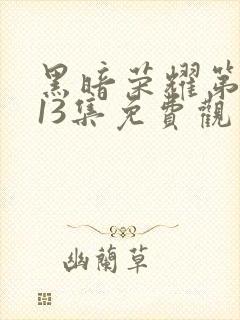 黑暗荣耀第
13集免費觀
幽蘭草